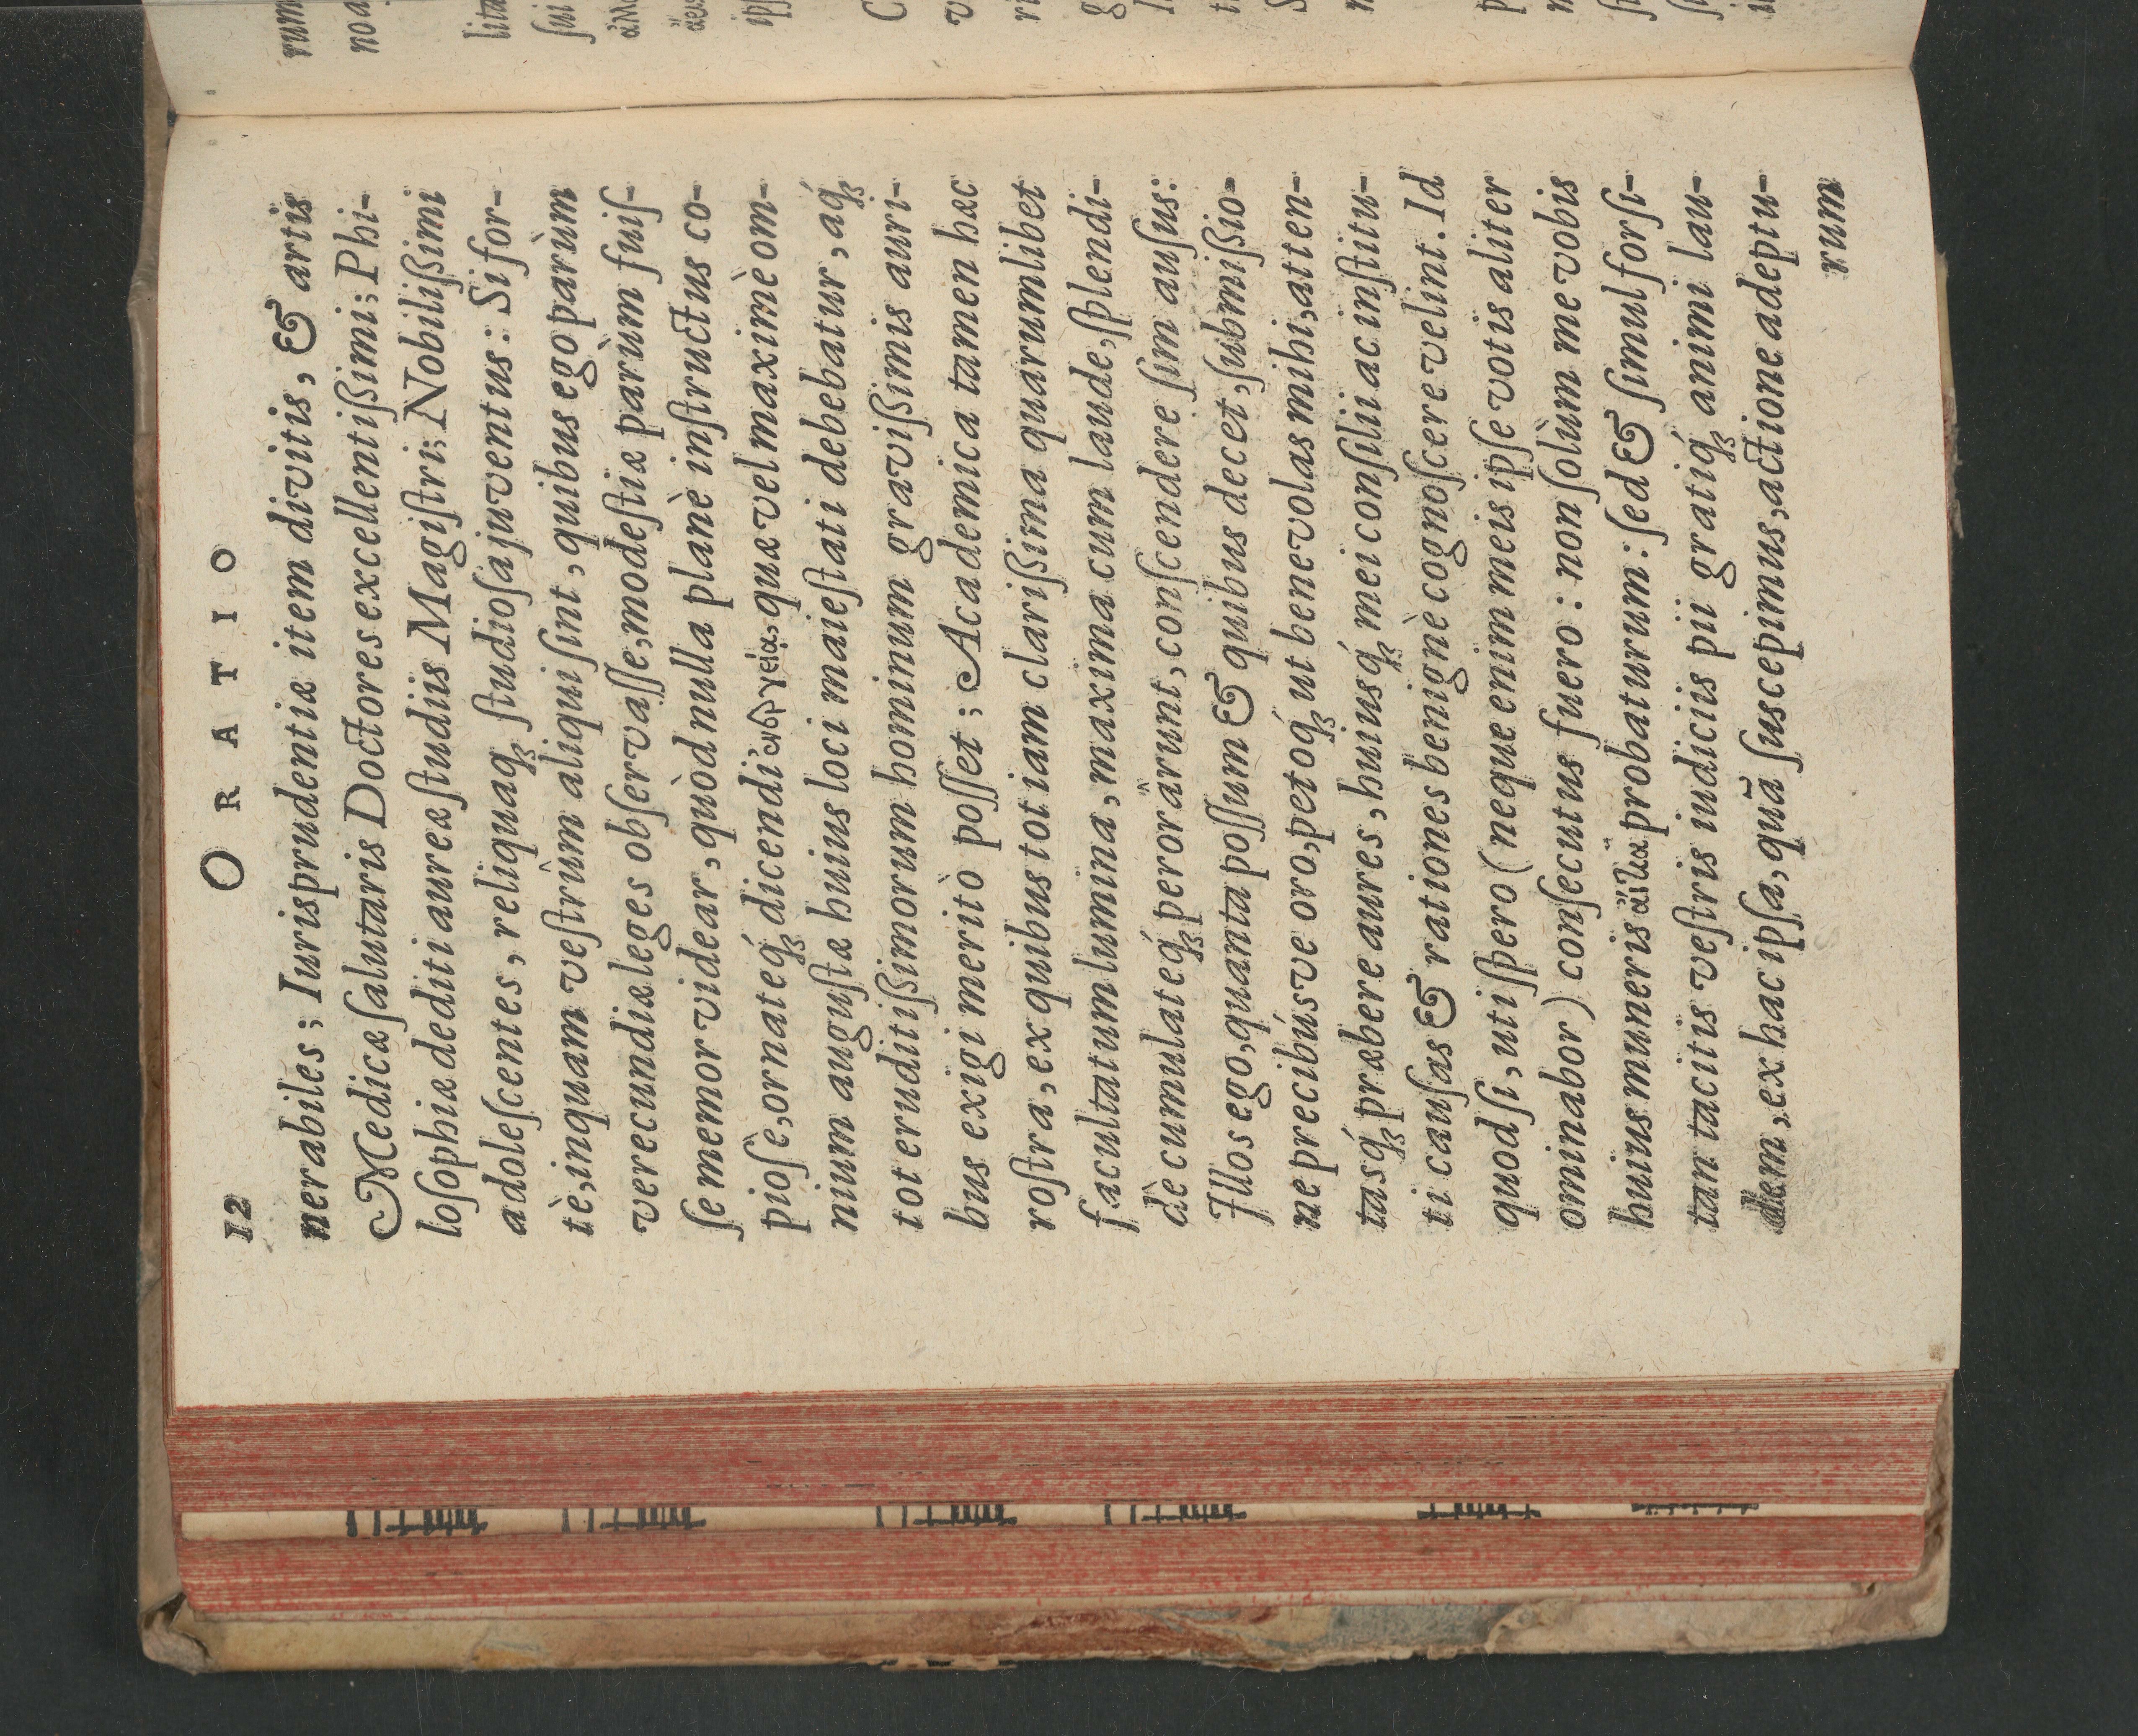 12 ORATIO
nerabiles; Iurisprudentiæ item divitis, & artis
Medicæ ſalutaris Doctores excellentißimi; Phi-
loſophiæ dediti aureæ ſtudiis Magiſtri; Nobilißimi
adoleſcentes, reliquaq́ꝫ ſtudioſa juventus: Si for-
tè, inquam veſtrùm aliqui ſint, quibus ego parùm
verecundiæ leges obſervaſſe, modeſtiæ parùm fuiſ-
ſe memor videar, quòd nulla planè inſtructus co-
pioſè, ornateq́ꝫ dicendi ἐνεργείᾳ, quæ vel maximè om-
nium auguſtæ huius loci maieſtati debebatur, aq́ꝫ
tot eruditißimorum hominum gravißimis auri-
bus exigi meritò poſſet; Academica tamen hæc
roſtra, ex quibus tot iam clarißima quarumlibet
facultatum lumina, maxima cum laude, ſplendi-
dè cumulateq́ꝫ perorârunt, conſcendere ſim auſus:
Illos ego, quanta poſſum & quibus decet, ſubmißio-
ne precibúsve oro, petoq́ꝫ ut benevolas mihi, atten-
tasq́ꝫ præbere aures, huiusq́ꝫ mei conſilii ac inſtitu-
ti cauſas & rationes benignè cognoſcere velint. Id
quod ſi, uti ſpero (neque enim meis ipſe votis aliter
ominabor) conſecutus fuero: non ſolùm me vobis
huius muneris ἄιτια probaturum: ſed & ſimul forſi-
tan tacitis veſtris iudiciis pii gratiq́ꝫ animi lau-
dem, ex hac ipſa, quã ſuscepimus, actione adeptu-
rum